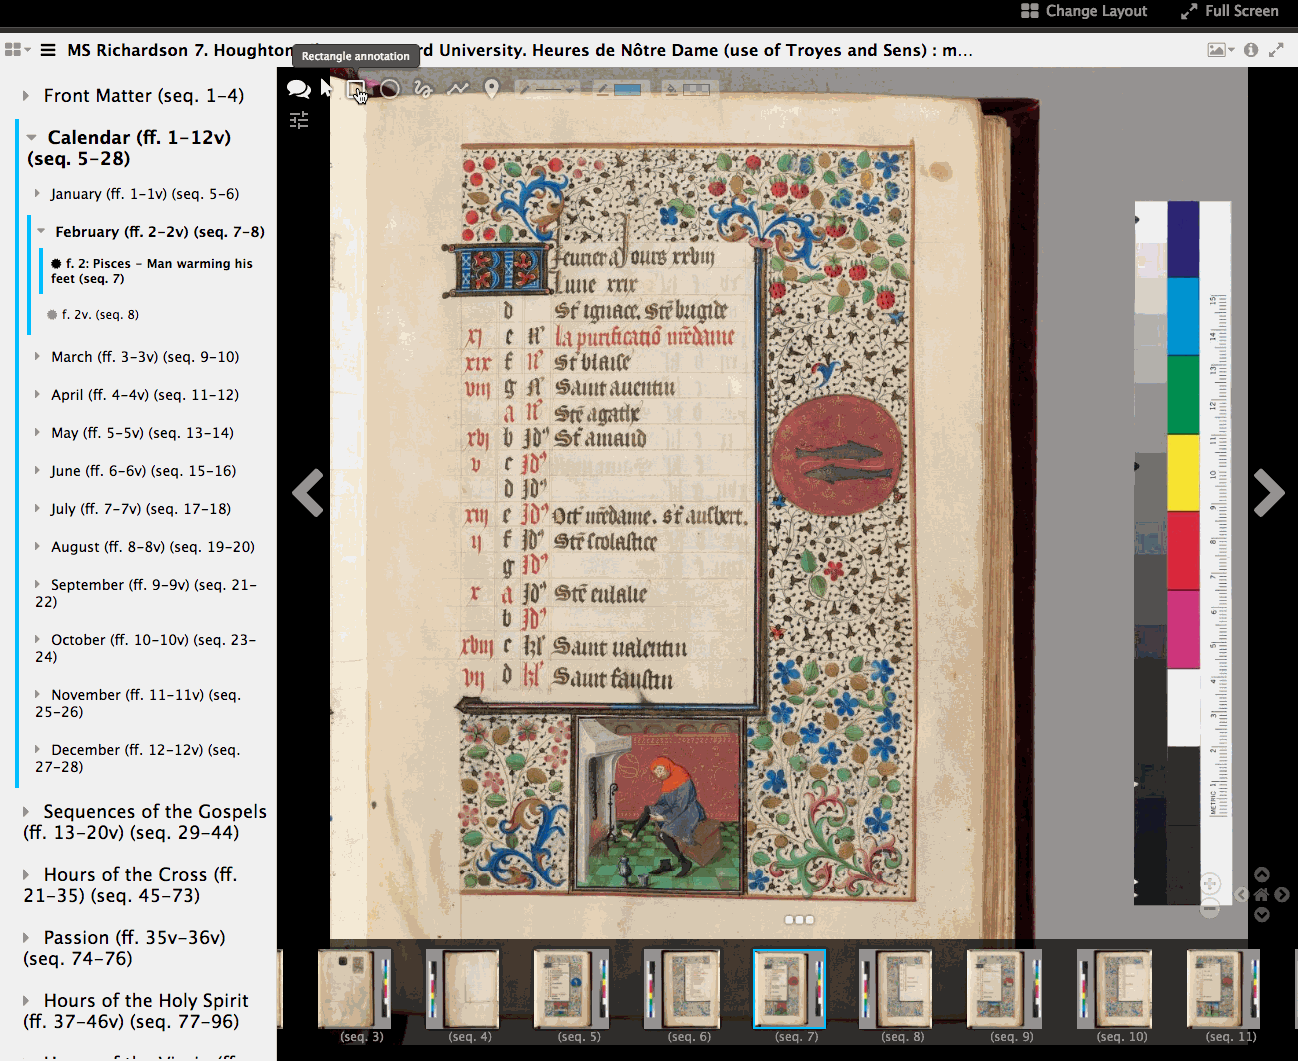 Change Layout
Full Screen
MS Richardson 7. Houghton
rd University. Heures de Nôtre Dame (use of Troyes and Sens) : m...
Rectangle annotation
Front Matter (seq. 1-4)
Calendar (ff. 1-12v)
(seq. 5-28)
January (ff. 1-1v) (seq. 5-6)
February (ff. 2-2v) (seq. 7-8)
f. 2: Pisces - Man warming his
feet (seq. 7)
f. 2v. (seq. 8)
March (ff. 3-3v) (seq. 9-10)
April (ff. 4-4v) (seq. 11-12)
May (ff. 5-5v) (seq. 13-14)
June (ff. 6-6v) (seq. 15-16)
July (ff. 7-7v) (seq. 17-18)
August (ff. 8-8v) (seq. 19-20)
September (ff. 9-9v) (seq. 21-
22)
October (ff. 10-10v) (seq. 23-
24)
November (ff. 11-11v) (seq.
25-26)
December (ff. 12-12v) (seq.
27-28)
Sequences of the Gospels
(ff. 13-20v) (seq. 29-44)
Hours of the Cross (ff.
21-35) (seq. 45-73)
Passion (ff. 35v-36v)
(seq. 74-76)
Hours of the Holy Spirit
(ff. 37-46v) (seq. 77-96)
feurier a Jours xxviij
Lune xxix
d St ignace. Ste brigide
xj e N la purificatiō nr̄edame
xix f N St blaise
viij g N Saint auentin
a N Ste agathe
xvj b Jd St amand
v c Jd
d Jd
xiij e Jd Oct nr̄edame. st ausbert.
ij f Jd Ste scolastice
g Jd
x a Jd Ste eulalie
b Jd
xviij c kl Saint ualentin
vij d kl Saint faustin
15
14
13
12
11
10
9
8
7
6
5
4
3
2
METRIC 1
(seq. 3)
(seq. 4)
(seq. 5)
(seq. 6)
(seq. 7)
(seq. 8)
(seq. 9)
(seq. 10)
(seq. 11)